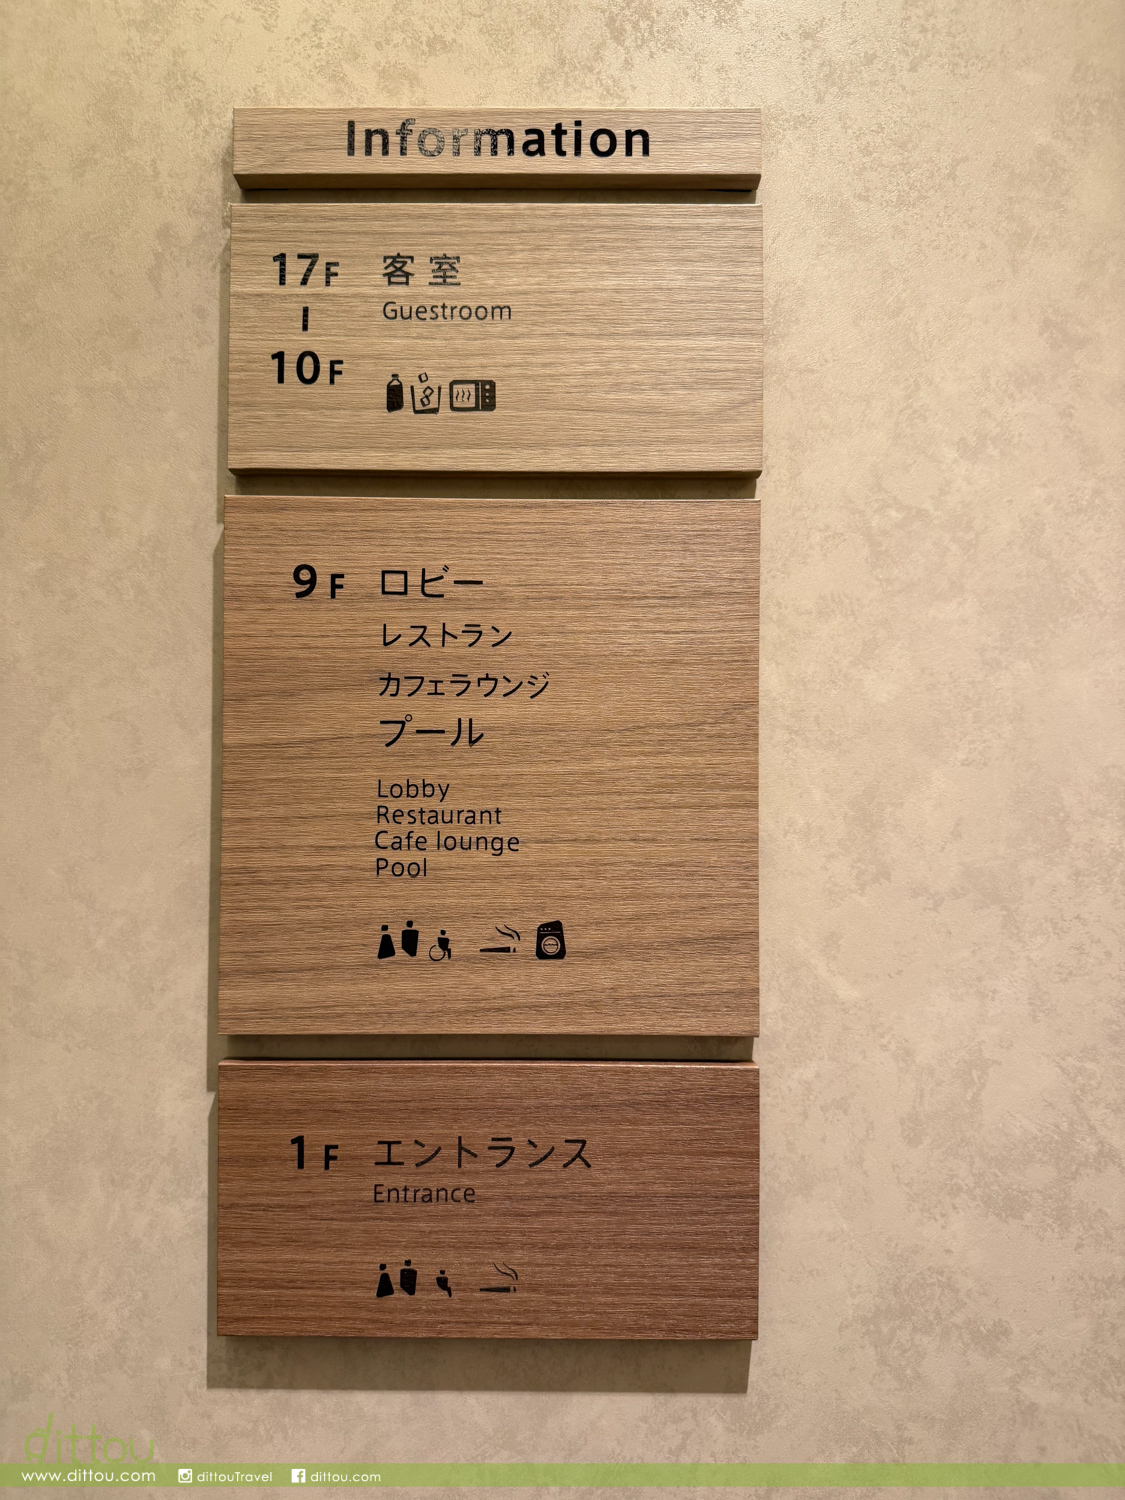 Information
17F 客室
Guestroom
|
10F
9F ロビー
レストラン
カフェラウンジ
プール
Lobby
Restaurant
Cafe lounge
Pool
1F エントランス
Entrance
dittou
www.dittou.com dittouTravel dittou.com